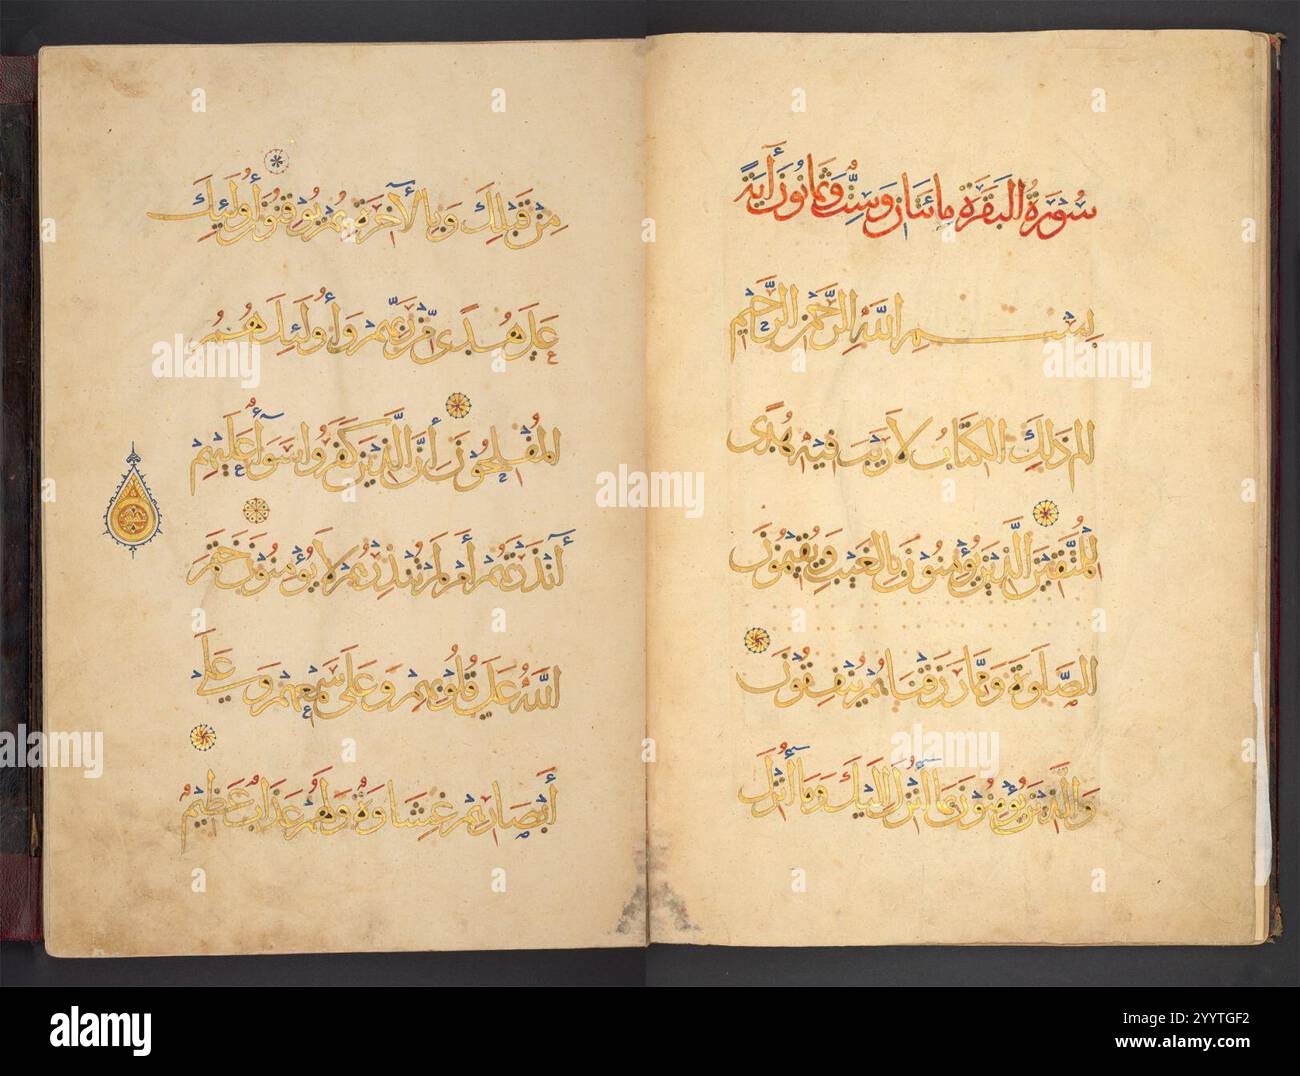 سورة البقرة مائتان وست وثمانون آية
بسم الله الرحمن الرحيم
الم ذلك الكتاب لا ريب فيه هدى
للمتقين الذين يؤمنون بالغيب ويقيمون
الصلوة ومما رزقناهم ينفقون
والذين يؤمنون بما أنزل إليك وما أنزل
من قبلك وبالآخرة هم يوقنون أولئك
على هدى من ربهم وأولئك هم
المفلحون إن الذين كفروا سواء عليهم
أأنذرتهم أم لم تنذرهم لا يؤمنون ختم
الله على قلوبهم وعلى سمعهم وعلى
أبصارهم غشاوة ولهم عذاب عظيم
alamy
Image ID: 2YYTGF2
www.alamy.com